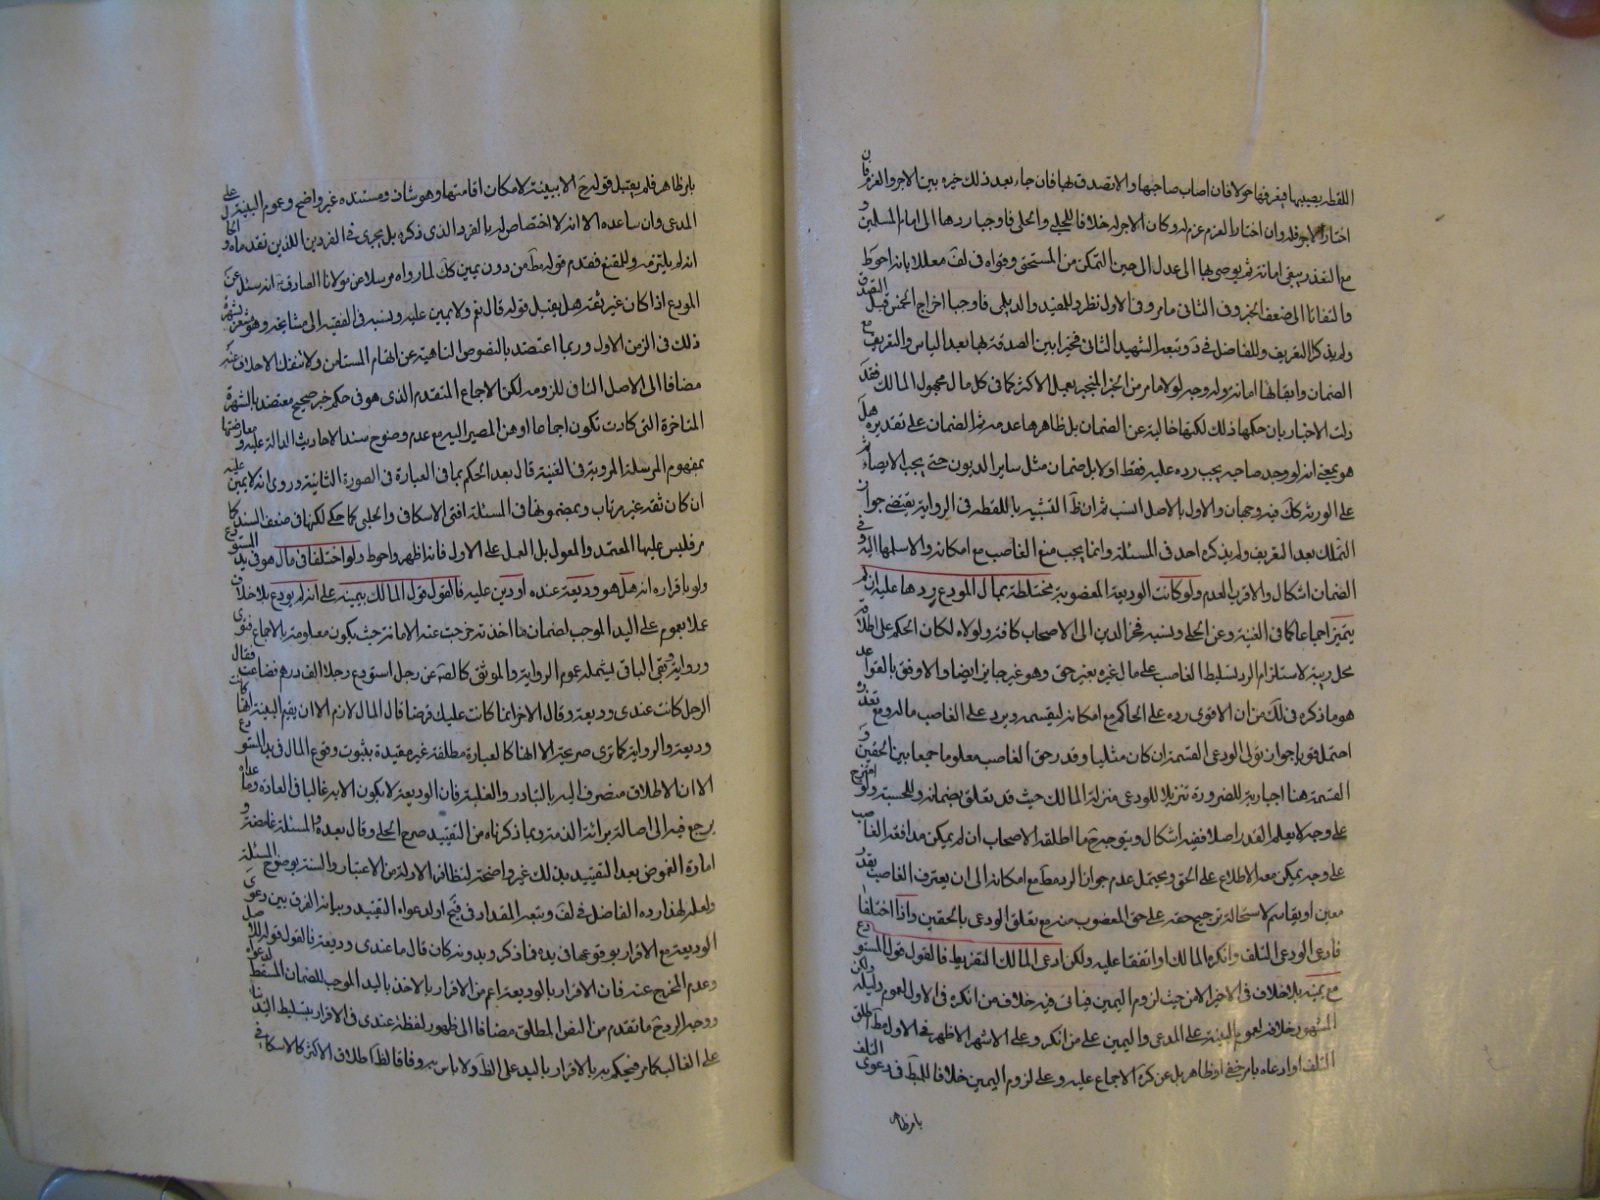 اللقطه يصيبها فيعرفها حولا فان اصاب صاحبها والا تصدق بها فان جاء بعد ذلك خيره بين الاجر والغرم فان
اختار الاجر فله وان اختار الغرم غرم له وكان الاجر له خلافا للحلبي والحلى فاوجبا ردها الى امام المسلمين و
مع التعذر يبقى امانة ثم يوصى بها الى عدل الى حين التمكن من المستحق وقواه فى لف معللا بانه احوط
والتفاتا الى ضعف الخبر وفى الثانى مامر وفى الاول نظر وللمفيد والديلمى فاوجبا اخراج الخمس قبل التصدق
ولم يذكرا التعريف وللفاضل فى د وتبعه الشهيد الثانى فخيرا بين الصدقة بها بعد الياس والتعريف مع
الضمان وابقائها امانة وله وجه لولا مامر من الخبر المنجبر بعمل الاكثر كما فى كل مال مجهول المالك فقد
دلت الاخبار بان حكمها ذلك لكنها خالية عن الضمان بل ظاهرها عدمه ثم الضمان على تقديره هل
هو بمعنى انه لو وجد صاحبه يجب رده عليه فقط او لا بل ضمان مثل ساير الديون حتى يجب الايصاء ثم
على الورثة كك فيه وجهان والاول بالاصل انسب ثم ان ظ التشبيه باللقطه فى الرواية يقتضى جواز
التملك بعد التعريف ولم يذكره احد فى المسئلة وانما يجب منع الغاصب مع امكانه والا سلمها اليه وفى
الضمان اشكال والاقرب العدم ولو كانت الوديعة المغصوبة مختلطة بمال المودع ردها عليه ان لم
يتميز اجماعا كما فى الغنية وعن الحلى ونسبه فخر الدين الى الاصحاب كافة ولولاه لكان الحكم على اطلاقه
محل ريبة لاستلزام الرد تسليط الغاصب على مال غيره بغير حق وهو غير جايز ايضا والاوفق بالقواعد
هو ما ذكره فى لك من ان الاقوى رده على الحاكم مع امكانه ليقسمه ويرد على الغاصب ماله ومع تعذره
احتمل قويا جواز تولى الودعى القسمة ان كان مثليا وقدر حق الغاصب معلوما جمعا بين الحقين و
القسمة هنا اجبارية للضرورة تنزيلا للودعى منزلة المالك حيث قد تعلق بضمانه وللحسبة ولو امتزج
على وجه لا يعلم القدر اصلا ففيه اشكال ويتوجه ح ما اطلقه الاصحاب ان لم يمكن مدافعة الغاصب
على وجه يمكن معه الاطلاع على الحق ويحتمل عدم جواز الرد مط مع امكانه الى ان يعترف الغاصب بقدر
معين او يقاسم لاستحالة ترجيح حقه على حق المغصوب منه مع تعلق الودعى بالحقين واذا اختلفا
فادعى الودعى التلف وانكره المالك او اتفقا عليه ولكن ادعى المالك التفريط فالقول قول المستودع
مع يمينه بلا خلاف فى الاخير الا من حيث لزوم اليمين فياتى فيه خلاف من انكره فى الاول لعموم دليله ولكن
المشهور خلافه لعموم البينة على المدعى واليمين على من انكر وعلى الاشهر الاظهر فى الاول مط اطلق
التلف او ادعاه بامر خفى او ظاهر بل عن كره الاجماع عليه وعلى لزوم اليمين خلافا للمبط فى دعوى التلف
بامر ظاهر
بامر ظاهر فلم يقبل قوله ح الا ببينة لامكان اقامتها وهو شاذ ومستنده غير واضح وعموم البينة على
المدعى وان ساعده الا انه لا اختصاص له بالفرد الذى ذكره بل يجرى فى الفردين اللذين تقدماه والحال
انه لم يلتزمه وللمقنع فقدم قوله مط من دون يمين كك لما رواه مرسلا عن مولانا الصادق ع انه سئل عن
المودع اذا كان غير ثقة هل يقبل قوله قال نعم ولا يمين عليه ونسبه فى الفقيه الى مشايخه وهو مشعر بشهرة
ذلك فى الزمن الاول وربما اعتضد بالنصوص الناهية عن اتهام المستامن ولا تنفك الاحلاف عنه
مضافا الى الاصل النافى للزومه لكن الاجماع المتقدم الذى هو فى حكم خبر صحيح معتضد بالشهرة
المتاخرة التى كادت تكون اجماعا اوهن المصير اليه مع عدم وضوح سند الاحاديث الدالة عليه ومعارضتها
بمفهوم المرسلة المروية فى الغنية قال بعد الحكم بما فى العبارة فى الصورة الثانية وروى انه لا يمين عليه
ان كان ثقة غير مرتاب وبمضمونها فى المسئلة افتى الاسكافى والحلبى كما حكى لكنها فى ضعف السند كما
مر فليس عليها المعتمد والمعول بل العمل على الاول فانه اظهر واحوط ولو اختلفا فى مال هو فى يد المستودع
ولو باقراره انه هل هو وديعة عنده او دين عليه فالقول قول المالك بيمينه على انه لم يودع بلا خلاف
عملا بعموم على اليد الموجب لضمان ما اخذته خرجت عنه الامانة حيث يكون معلومة بالاجماع فتوى
ورواية وبقى الباقى ليشمله عموم الرواية والموثق كالصه عن رجل استودع رجلا الف درهم فضاعت فقال
الرجل كانت عندى وديعة وقال الاخر انما كانت عليك قرضا قال المال لازم الا ان يقيم البينة انها كانت
وديعة والرواية كما ترى صريحة الا انها كالعبارة مطلقة غير مقيدة بثبوت وقوع المال فى يد المستودع
الا ان الاطلاق منصرف اليه بالتبادر والغلبة فان الوديعة لا يكون الا به غالبا فى العادة وما عداه
يرجع فيه الى اصالة برائة الذمة وبما ذكرناه من التقييد صرح الحلى وقال بعده والمسئلة غامضة و
امارة الغموض بعد التقييد بذلك غير واضحة لتظافر الادلة من الاعتبار والسنة بوضوح المسئلة
ولعله لهذا رده الفاضل فى لف وتبعه المقداد فى قيح اولدعواه التقييد وبيانه الفرق بين دعوى
الوديعة مع الاقرار بوقوعها فى يده فما ذكر وبدونه كان قال ما عندى وديعة فالقول قوله للاصل
وعدم المخرج عنه فان الاقرار بالوديعة اعم من الاقرار بالاخذ باليد الموجب للضمان المسقط لدعواه
ووجه الرد ح ما تقدم من النص المطلق مضافا الى ظهور لفظة عندى فى الاقرار بتسليط اليد بناء
على الغالب كما مر فيحكم به بالاقرار باليد على الظ ولا باس به وفاقا لظ اطلاق الاكثر كالاسكافى